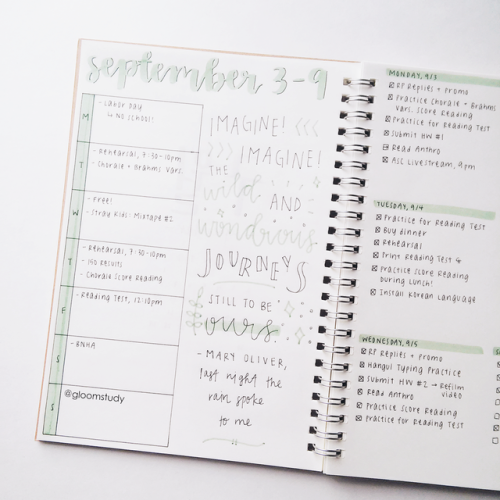 september 3-9
M
- Labor Day
↳ NO SCHOOL!
T
- Rehearsal, 7:30-10pm
- Chorale + Brahms Vars.
W
- Free!
- Stray Kids: Mixtape #2
T
- Rehearsal, 7:30-10pm
- 140 Results
- Chorale Score Reading
F
- Reading Test, 12:10pm
S
- BNHA
S
@gloomstudy
IMAGINE!
IMAGINE!
THE
wild AND
wondrous
JOURNEYS
STILL TO BE
ours.
- MARY OLIVER,
last night the
rain spoke
to me
MONDAY, 9/3
RP Replies + Promo
Practice Chorale + Brahms
Vars. Score Reading
Practice for Reading Test
Submit HW #1
Read Anthro
ASC Livestream, 9pm
TUESDAY, 9/4
Practice for Reading Test
Buy dinner
Rehearsal
Print Reading Test 4
Practice Score Reading
during lunch!
Install Korean Language
WEDNESDAY, 9/5
RP Replies + Promo
Hangul Typing Practice
Submit HW #2 → Refilm
video
Read Anthro
Practice Score Reading
Practice for Reading Test